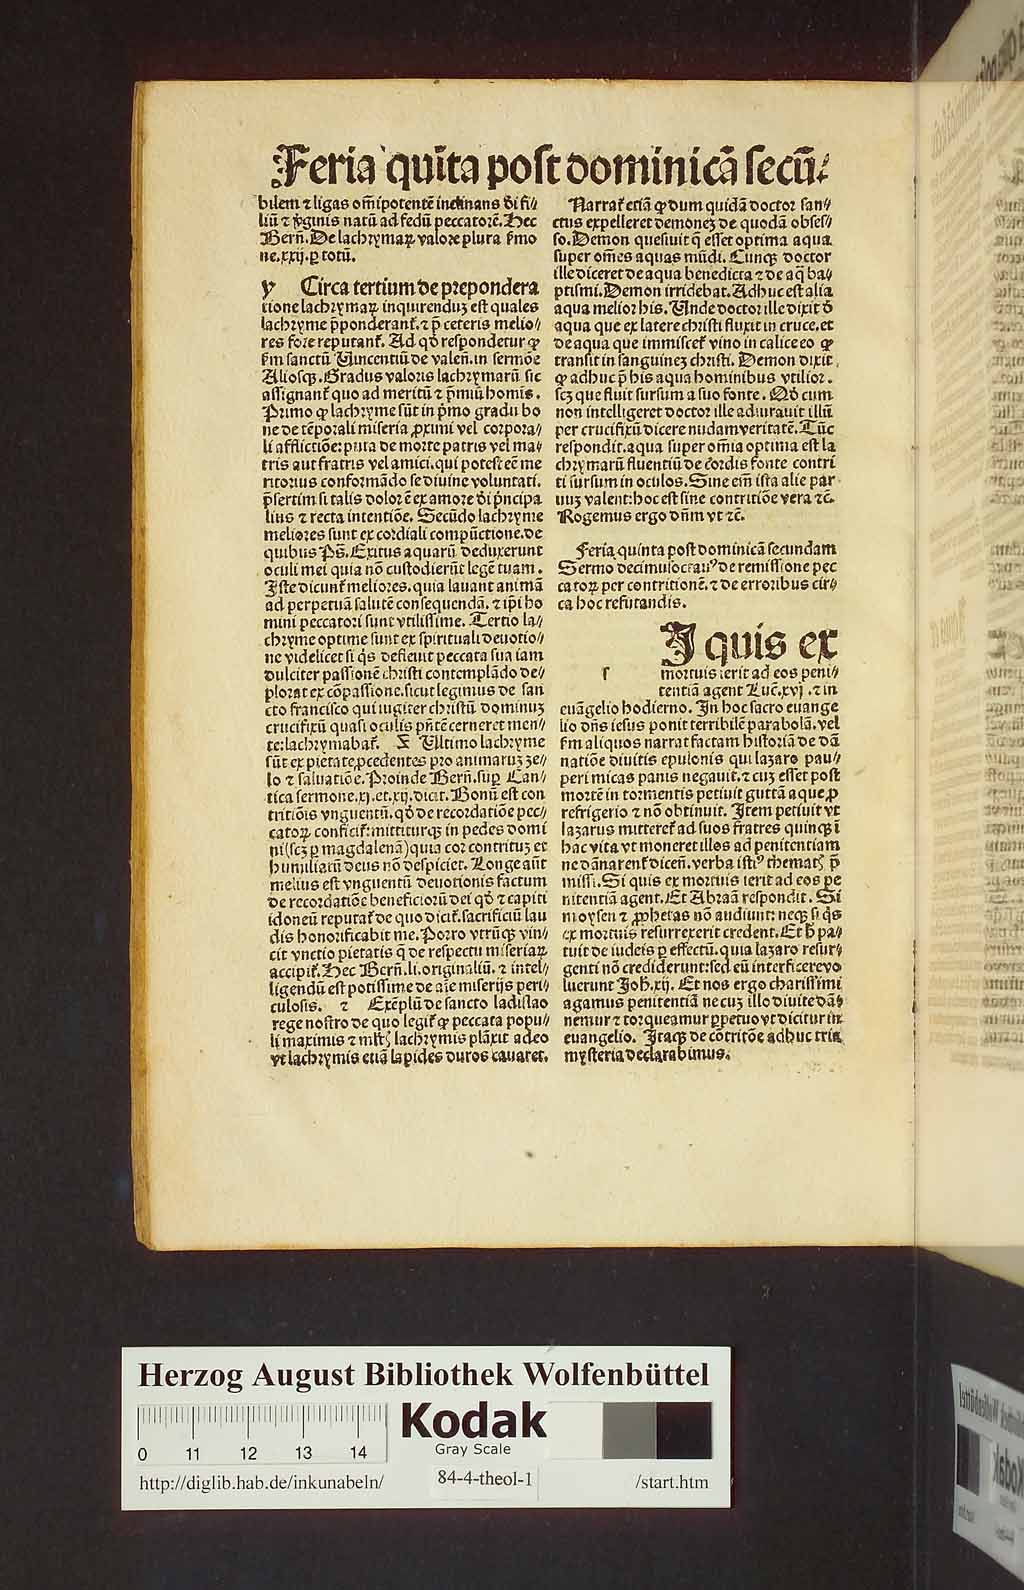 Feria quīta post dominicā secū⸗
bilem ⁊ ligas om̄ipotentē inclinans di fi⸗
liū ⁊ v̾ginis natū ad fedū peccatorē. Hec
Bern̄. De lachrymaꝝ valore plura s̾mo
ne.xxij. ꝑ totū.
y Circa tertium de prepondera
tione lachrymaꝝ inquirenduꝫ est quales
lachryme p̄ponderant̉. ⁊ p̄ ceteris melio⸗
res fore reputant̉. Ad qd̄ respondetur ꝙ
s̾m sanctū Vincentiū de valen̄. in sermōe
Aliosqꝫ. Gradus valoris lachrymarū sic
assignant̉ quo ad meritū ⁊ p̄miū homīs.
Primo ꝙ lachryme sūt in p̄mo gradu bo
ne de tēporali miseria ꝓximi vel corpora⸗
li afflictiōe: puta de morte patris vel ma⸗
tris aut fratris vel amici. qui potest eē me
ritorius conformādo se diuine voluntati.
p̄sertim si talis dolor ē ex amore di p̄ncipa
lius ⁊ recta intentiōe. Secūdo lachryme
meliores sunt ex cordiali compūctione. de
quibus Ps̄. Exitus aquarū deduxerunt
oculi mei quia nō custodierūt legē tuam.
Iste dicunt̉ meliores. quia lauant animā
ad perpetuā salutē consequendā. ⁊ ip̄i ho
mini peccatori sunt vtilissime. Tertio la⸗
chryme optime sunt ex spirituali deuotio⸗
ne videlicet si q̇s defleuit peccata sua iam
dulciter passionē christi contemplādo de⸗
plorat ex cōpassione. sicut legimus de san
cto francisco qui iugiter christū dominuꝫ
crucifixū quasi oculis p̄ntē cerneret men⸗
te: lachrymabat̉. Ultimo lachryme
sūt ex pietate ꝓcedentes pro animaruꝫ ze⸗
lo ⁊ saluatiōe. Proinde Bern̄. sup̄ Can⸗
tica sermone.xj. et.xij. dicit. Bonū est con
tritiōis vnguentū. qd̄ de recordatiōe pec⸗
catoꝝ conficit̉: mittiturqꝫ in pedes domi
ni (scꝫ ꝑ magdalenā) quia cor contrituꝫ et
humiliatū deus nō despiciet. Longe aūt
melius est vnguentū deuotionis factum
de recordatiōe beneficiorū dei qd̄ ⁊ capiti
idoneū reputat̉ de quo dicit̉. sacrificiū lau
dis honorificabit me. Porro vtrūqꝫ vin⸗
cit vnctio pietatis q̄ de respectu miseriaꝝ
accipit̉. Hec Bern̄. li. originaliū. ⁊ intel⸗
ligendū est potissime de aīe miserijs peri⸗
culosis. z Exēplū de sancto ladislao
rege nostro de quo legit̉ ꝙ peccata popu⸗
li maximis ⁊ mltꝭ lachrymis plāxit adeo
vt lachrymis etiā lapides duros cauaret.
Narrat̉ etiā ꝙ dum quidā doctor san⸗
ctus expelleret demoneꝫ de quodā obses⸗
so. Demon quesiuit q̄ esset optima aqua
super om̄es aquas mūdi. Cunqꝫ doctor
ille diceret de aqua benedicta ⁊ de aq̄ ba⸗
ptismi. Demon irridebat. Adhuc est alia
aqua melior his. Unde doctor ille dixit d̄
aqua que ex latere christi fluxit in cruce. et
de aqua que immiscet̉ vino in calice eo ꝙ
transit in sanguineꝫ christi. Demon dixit
ꝙ adhuc p̄ his aqua hominibus vtilior.
scꝫ que fluit sursum a suo fonte. Qd̄ cum
non intelligeret doctor ille adiurauit illū
per crucifixū dicere nudam veritatē. Tūc
respondit. aqua super om̄ia optima est la
chrymarū fluentiū de cordis fonte contri
ti sursum in oculos. Sine em̄ ista alie par
uuꝫ valent: hoc est sine contritiōe vera ⁊c̄.
Rogemus ergo dn̄m vt ⁊c̄.
Feria quinta post dominicā secundam
Sermo decimusoctauꝰ de remissione pec
catoꝝ per contritionē. ⁊ de erroribus cir⸗
ca hoc refutandis.
SI quis ex
mortuis ierit ad eos peni⸗
tentiā agent Luc̄.xvj. ⁊ in
euāgelio hodierno. In hoc sacro euange
lio dn̄s iesus ponit terribilē parabolā. vel
s̾m aliquos narrat factam historiā de dā
natiōe diuitis epulonis qui lazaro pau⸗
peri micas panis negauit. ⁊ cuꝫ esset post
mortē in tormentis petiuit guttā aque ꝓ
refrigerio ⁊ nō obtinuit. Item petiuit vt
lazarus mitteret̉ ad suos fratres quinqꝫ ī
hac vita vt moneret illos ad penitentiam
ne dānarent̉ dicen̄. verba istiꝰ thematꝭ p̄
missi. Si quis ex mortuis ierit ad eos pe
nitentiā agent. Et Abraā respondit. Si
moysen ⁊ ꝓphetas nō audiunt: neqꝫ si q̇s
ex mortuis resurrexerit credent. Et h̄ pa⸗
tuit de iudeis ꝑ effectū. quia lazaro resur⸗
genti nō crediderunt: sed eū interficere vo
luerunt Joh̄.xij. Et nos ergo charissimi
agamus penitentiā ne cuꝫ illo diuite dā⸗
nemur ⁊ torqueamur ꝑpetuo vt dicitur in
euangelio. Itaqꝫ de cōtritōe adhuc tria
mysteria declarabimus.
Herzog August Bibliothek Wolfenbüttel
Kodak
Gray Scale
0 11 12 13 14
http://diglib.hab.de/inkunabeln/ 84-4-theol-1 /start.htm